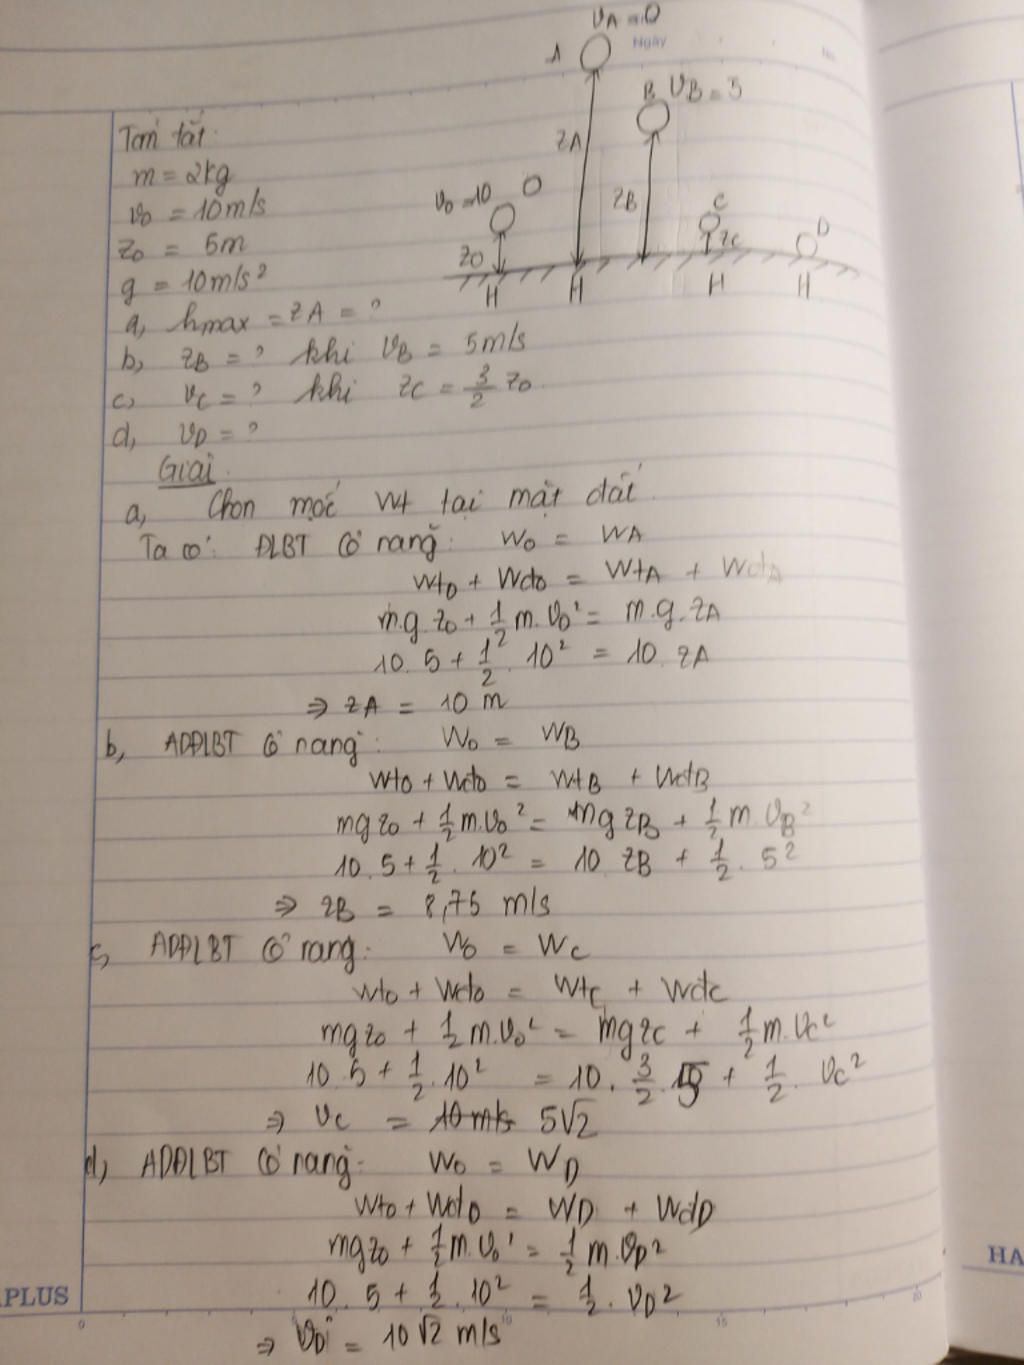 vA = 0
A
Ngày
No.
B vB = 3
Tóm tắt:
zA
m = 2kg
v0 = 10 O
zB
C
v0 = 10m/s
D
z0 = 5m
z0
zC
g = 10m/s²
H H H H
a, hmax = zA = ?
b, zB = ? khi vB = 5m/s
c, vC = ? khi zC = 3/2 z0
d, vD = ?
Giải.
a, Chọn mốc Wt tại mặt đất.
Ta có: ĐLBT cơ năng: W0 = WA
Wt0 + Wđ0 = WtA + WđA
m.g.z0 + 1/2 m.v0² = m.g.zA
10.5 + 1/2.10² = 10.zA
⇒ zA = 10 m
b, ADĐLBT cơ năng: W0 = WB
Wt0 + Wđ0 = WtB + WđB
mgz0 + 1/2 m.v0² = mgzB + 1/2 m.vB²
10.5 + 1/2.10² = 10 zB + 1/2.5²
⇒ zB = 8,75 m/s
c, ADĐLBT cơ năng: W0 = WC
Wt0 + Wđ0 = WtC + WđC
mgz0 + 1/2 m.v0² = mgzC + 1/2 m.vC²
10.5 + 1/2.10² = 10.3/2.5 + 1/2.vC²
⇒ vC = 10m/s 5√2
d, ADĐLBT cơ năng: W0 = WD
Wt0 + Wđ0 = WD + WđD
mgz0 + 1/2 m.v0² = 1/2 m.vD²
10.5 + 1/2.10² = 1/2.vD²
⇒ vD = 10√2 m/s
APLUS
HA
0 10 15 20